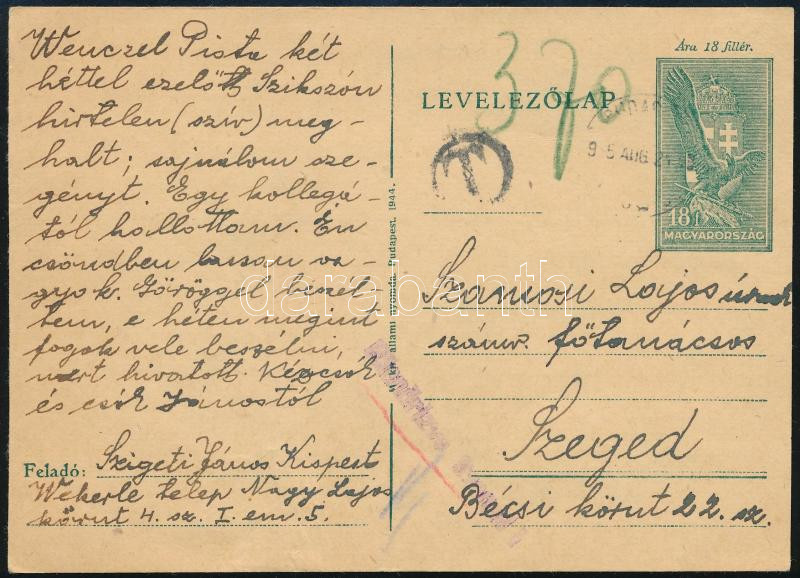 Wenczel Pista két
héttel ezelőtt Szikszón
hirtelen (szív) meg-
halt; sajnálom sze-
gényt. Egy kollegá-
tól hallottam. Én
csöndben lassan va-
gyok. Göröggel beszél
tem, e héten megint
fogok vele beszélni,
mert hivatott. Kézcsók
és csók Jánostól
Feladó: Szigeti János Kispest
Wekerle telep Nagy Lajos
körut 4. sz. I. em. 5.
M. kir. állami nyomda, Budapest. 1944.
370
Ára 18 fillér.
LEVELEZŐLAP
T
9 5 AUG 21
18 f
MAGYARORSZÁG
Szamosi Lajos úrnak
számv. főtanácsos
Szeged
Bécsi körut 22. sz.
darabanth